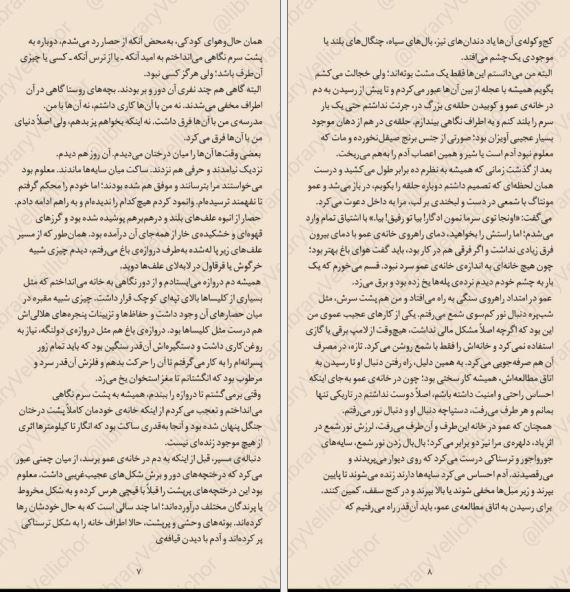 همان حال‌وهوای کودکی، به‌محض آنکه از حصار رد می‌شدم، دوباره به
پشت سرم نگاهی می‌انداختم به امید آنکه ـ یا از ترس آنکه ـ کسی یا چیزی
آن‌طرف باشد؛ ولی هرگز کسی نبود.
البته گاهی هم چند نفری آن دور و بر بودند. بچه‌های روستا گاهی در آن
اطراف مخفی می‌شدند. نه من با آن‌ها کاری داشتم، نه آن‌ها با من.
مدرسه‌ی من با آن‌ها فرق داشت. نه اینکه بخواهم پز بدهم، ولی اصلاً دنیای
من با آن‌ها فرق می‌کرد.
بعضی وقت‌ها آن‌ها را میان درختان می‌دیدم. آن روز هم دیدم.
نزدیک نیامدند و حرفی هم نزدند. ساکت میان سایه‌ها ماندند. معلوم بود
می‌خواستند مرا بترسانند و موفق هم شده بودند؛ اما خودم را محکم گرفتم
تا نفهمند ترسیده‌ام. وانمود کردم هیچ‌کدام را ندیده‌ام و به راهم ادامه دادم.
حصار از انبوه علف‌های بلند و درهم‌برهم پوشیده شده بود و گرزهای
قهوه‌ای و خشکیده‌ی خار از همه‌جای آن درآمده بود. همان‌طور که از مسیر
علف‌های زیر پا له‌شده به‌طرف دروازه‌ی باغ می‌رفتم، دیدم چیزی شبیه
خرگوش یا قرقاول در لابه‌لای علف‌ها دوید.
همیشه دم دروازه می‌ایستادم و از دور نگاهی به خانه می‌انداختم که مثل
بسیاری از کلیساها بالای تپه‌ای کوچک قرار داشت. چیزی شبیه مقبره در
میان حصارهای آن وجود داشت و حفاظ‌ها و تزیینات پنجره‌های هلالی‌اش
هم درست مثل کلیساها بود. دروازه‌ی باغ هم مثل دروازه‌ی دولنگه، نیاز به
روغن‌کاری داشت و دستگیره‌اش آن‌قدر سنگین بود که باید تمام زور
پسرانه‌ام را به کار می‌گرفتم تا آن را حرکت بدهم و فلزش آن‌قدر سرد و
مرطوب بود که انگشتانم تا مغز استخوان یخ می‌زد.
وقتی برمی‌گشتم تا دروازه را ببندم، همیشه به پشت سرم نگاهی
می‌انداختم و تعجب می‌کردم از اینکه خانه‌ی خودمان کاملاً پشت درختان
جنگل پنهان شده بود و آنجا به‌قدری ساکت بود که انگار تا کیلومترها اثری
از هیچ موجود زنده‌ای نیست.
دنباله‌ی مسیر، قبل از اینکه به دم در خانه‌ی عمو برسد، از میان چمنی عبور
می‌کرد که درختچه‌های دور و برش شکل‌های عجیب‌غریبی داشت. معلوم
بود این درختچه‌های پرپشت را قبلاً با قیچی هرس کرده و به شکل مخروط
یا پرندگان مختلف درآورده‌اند؛ اما چند سالی است که به حال خودشان رها
کرده‌اند. بوته‌های وحشی و پرپشت، حالا اطراف خانه را به شکل ترسناکی
پر کرده‌اند و آدم با دیدن قیافه‌ی
۷
کج‌وکوله‌ی آن‌ها یاد دندان‌های تیز، بال‌های سیاه، چنگال‌های بلند یا
موجودی یک چشم می‌افتد.
البته من می‌دانستم این‌ها فقط یک مشت بوته‌اند؛ ولی خجالت می‌کشم
بگویم همیشه با عجله از بین آن‌ها عبور می‌کردم و تا پیش از رسیدن به دم
در خانه‌ی عمو و کوبیدن حلقه‌ی بزرگ در، جرئت نداشتم حتی یک بار
سرم را بلند کنم و به اطراف نگاهی بیندازم. حلقه‌ی در هم از دهان موجود
بسیار عجیبی آویزان بود؛ صورتی از جنس برنج صیقل‌نخورده و مات که
معلوم نبود آدم است یا شیر و همین اعصاب آدم را به‌هم می‌ریخت.
بعد از گذشت زمانی که همیشه به نظرم ده برابر طول می‌کشید و درست
همان لحظه‌ای که تصمیم داشتم دوباره حلقه را بکوبم، در باز می‌شد و عمو
مونتاگ با شمعی در دست و لبخندی بر لب، مرا به داخل دعوت می‌کرد.
می‌گفت: «اونجا توی سرما نمون ادگار! بیا تو رفیق! بیا.» با اشتیاق تمام وارد
می‌شدم؛ اما راستش را بخواهید، دمای راهروی خانه‌ی عمو با دمای بیرون
فرق زیادی نداشت و اگر فرقی هم در کار بود، باید گفت هوای باغ بهتر بود؛
چون هیچ خانه‌ای به اندازه‌ی خانه‌ی عمو سرد نبود. قسم می‌خورم که یک
بار به چشم خودم دیدم نرده‌ی پله‌ها یخ زده بود و برق می‌زد.
عمو در امتداد راهروی سنگی به راه می‌افتاد و من هم پشت سرش، مثل
شب‌پره دنبال نور کم‌سوی شمع می‌رفتم. یکی از کارهای عجیب عموی من
این بود که اگرچه اصلاً مشکل مالی نداشت، هیچ‌وقت از لامپ برقی یا گازی
استفاده نمی‌کرد و خانه‌اش را فقط با شمع روشن می‌کرد. تازه، در مصرف
آن هم صرفه‌جویی می‌کرد. به همین دلیل، راه رفتن دنبال او تا رسیدن به
اتاق مطالعه‌اش، همیشه کار سختی بود؛ چون در خانه‌ی عمو به‌جای اینکه
احساس راحتی و امنیت داشته باشم، اصلاً دوست نداشتم در تاریکی تنها
بمانم و هر طرف می‌رفت، دستپاچه دنبال او و دنبال نور می‌رفتم.
همچنان که عمو در خانه این‌طرف و آن‌طرف می‌رفت، لرزش نور شمع در
اثر باد، دلهره‌ی مرا نیز دو برابر می‌کرد؛ بال‌بال زدن نور شمع، سایه‌های
جورواجور و ترسناکی درست می‌کرد که روی دیوار می‌پریدند و
می‌رقصیدند. آدم احساس می‌کرد سایه‌ها دارند زنده می‌شوند تا پایین
بپرند و زیر مبل‌ها مخفی شوند یا بالا بپرند و در کنج سقف، کمین کنند.
برای رسیدن به اتاق مطالعه‌ی عمو، باید آن‌قدر راه می‌رفتیم که
۸